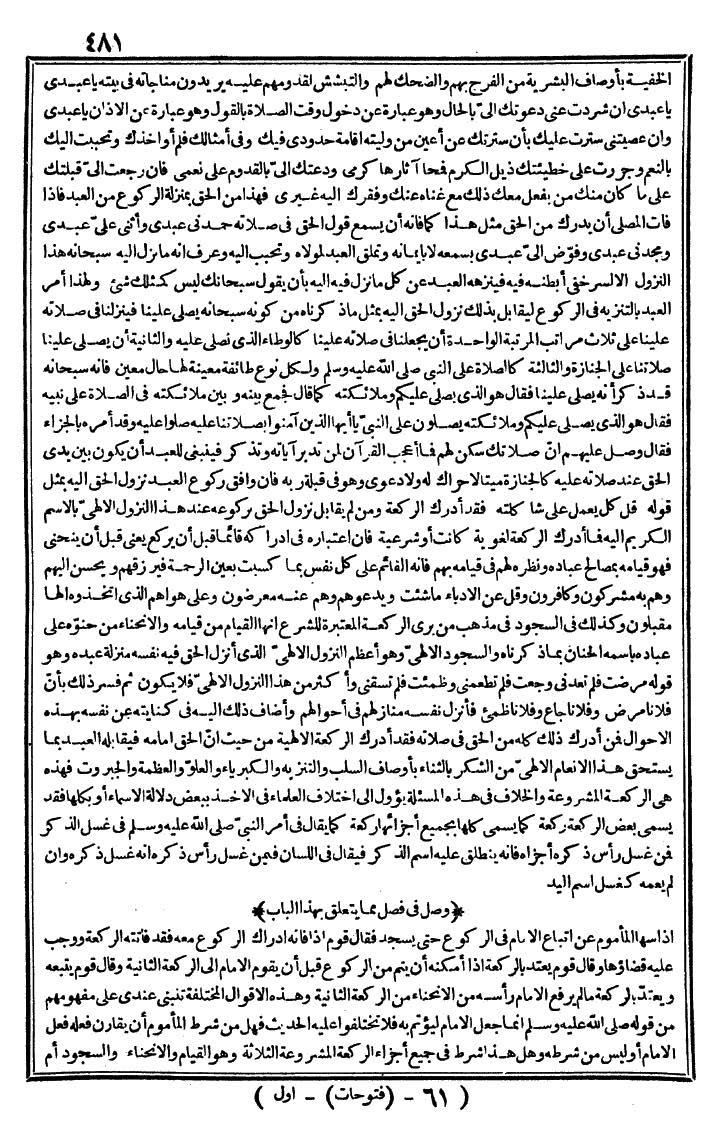 ٤٨١
الخفية بأوصاف البشرية من الفرح بهم والضحك لهم والتبشش لقدومهم عليه يريدون مناجاته فى بيته ياعبدى
ياعبدى ان شردت عنى دعوتك الىّ بالحال وهو عبارة عن دخول وقت الصلاة بالقول وهو عبارة عن الاذان ياعبدى
وان عصيتنى سترت عليك بأن سترتك عن أعين من وليته اقامة حدودى فيك وفى أمثالك فلم أواخذك وتحببت اليك
بالنعم وجررت على خطيئتك ذيل الكرم فمحا آثارها كرمى ودعتك الىّ بالقدوم على نعمى فان رجعت الىّ قبلتك
على ما كان منك من يفعل معك ذلك مع غناه عنك وفقرك اليه غيرى فهذا من الحق بمنزلة الركوع من العبد فاذا
فات المصلى أن يدرك من الحق مثل هذا كما فاته أن يسمع قول الحق فى صلاته حمدنى عبدى وأثنى علىّ عبدى
ومجدنى عبدى وفوّض الىّ عبدى بسمعه لا بايمانه وتملق العبد لمولاه وتحبب اليه وعرف انه ما نزل اليه سبحانه هذا
النزول الالسر خفى أبطنه فيه فينزهه العبد عن كل ما نزل فيه اليه بأن يقول سبحانك ليس كمثلك شئ ولهذا أمر
العبد بالتنزيه فى الركوع ليقابل بذلك نزول الحق اليه بمثل ماذكرناه من كونه سبحانه يصلى علينا فينزلنا فى صلاته
علينا على ثلاث مراتب المرتبة الواحدة أن يجعلنا فى صلاته علينا كالوطاء الذى نصلى عليه والثانية أن يصلى علينا
صلاتنا على الجنازة والثالثة كالصلاة على النبى صلى الله عليه وسلم ولكل نوع طائفة معينة لها حال معين فانه سبحانه
قد ذكر أنه يصلى علينا فقال هو الذى يصلى عليكم وملائكته كما قال فجمع بينه وبين ملائكته فى الصلاة على نبيه
فقال هو الذى يصلى عليكم وملائكته يصلون على النبىّ ياأيها الذين آمنوا بصلاتنا عليه صلوا عليه وقد أمره بالجزاء
فقال وصل عليهم انّ صلاتك سكن لهم فما أعجب القرآن لمن تدبر آياته وتذكر فينبغى للعبد أن يكون بين يدى
الحق عند صلاته عليه كالجنازة ميتا لاحراك له ولا دعوى وهو فى قبلة ربه فان وافق ركوع العبد نزول الحق اليه بمثل
قوله قل كل يعمل على شاكلته فقد أدرك الركعة ومن لم يقابل نزول الحق بركوعه عند هذا النزول الالهىّ بالاسم
الكريم اليه فما أدرك الركعة لغوية كانت أو شرعية فان اعتباره فى ادراكه قائما قبل أن يركع يعنى قبل أن ينحنى
فهو قيامه بمصالح عباده ونظره لهم فى قيامه بهم فانه القائم على كل نفس بما كسبت بعين الرحمة فيرزقهم ويحسن اليهم
وهم به مشركون وكافرون وقل عن الادباء ماشئت ويدعوهم وهم عنه معرضون وعلى هواهم الذى اتخذوه الها
مقبلون وكذلك فى السجود فى مذهب من يرى الركعة المعتبرة للشرع انها القيام من قيامه والانحناء من حنوّه على
عباده باسمه الحنان بماذكرناه والسجود الالهىّ وهو أعظم النزول الالهىّ الذى أنزل الحق فيه نفسه منزلة عبده وهو
قوله مرضت فلم تعدنى وجعت فلم تطعمنى وظمئت فلم تسقنى وأكثر من هذا النزول الالهىّ فلا يكون ثم فسر ذلك بأنّ
فلانا مرض وفلانا جاع وفلانا ظمئ فأنزل نفسه منازلهم فى أحوالهم وأضاف ذلك اليه فى كنايته عن نفسه بهذه
الاحوال فمن أدرك ذلك كله من الحق فى صلاته فقد أدرك الركعة الالهية من حيث انّ الحق امامه فيقابله العبد بما
يستحق هذا الانعام الالهىّ من الشكر بالثناء بأوصاف السلب والتنزيه والكبرياء والعلوّ والعظمة والجبروت فهذه
هى الركعة المشروعة والخلاف فى هذه المسئلة يؤول الى اختلاف العلماء فى الاخذ ببعض دلالة الاسماء أو بكلها فقد
يسمى بعض الركعة ركعة كما يسمى كلها بجميع أجزائها ركعة كما يقال فى أمر النبىّ صلى الله عليه وسلم فى غسل الذكر
فمن غسل رأس ذكره أجزاه فانه ينطلق عليه اسم الذكر فيقال فى اللسان فيمن غسل رأس ذكره انه غسل ذكره وان
لم يعمه كغسل اسم اليد
﴿وصل فى فصل مما يتعلق بهذا الباب﴾
اذا سها المأموم عن اتباع الامام فى الركوع حتى يسجد فقال قوم اذا فاته ادراك الركوع معه فقد فاتته الركعة ووجب
عليه قضاؤها وقال قوم يعتد بالركعة اذا أمكنه أن يتم من الركوع قبل أن يقوم الامام الى الركعة الثانية وقال قوم يتبعه
ويعتدّ بالركعة مالم يرفع الامام رأسه من الانحناء من الركعة الثانية وهذه الاقوال المختلفة تنبنى عندى على مفهومهم
من قوله صلى الله عليه وسلم انما جعل الامام ليؤتم به فلا تختلفوا عليه الحديث فهل من شرط المأموم أن يقارن فعله فعل
الامام أو ليس من شرطه وهل هذا شرط فى جميع أجزاء الركعة المشروعة الثلاثة وهو القيام والانحناء والسجود أم
( ٦١ - (فتوحات) - اول )